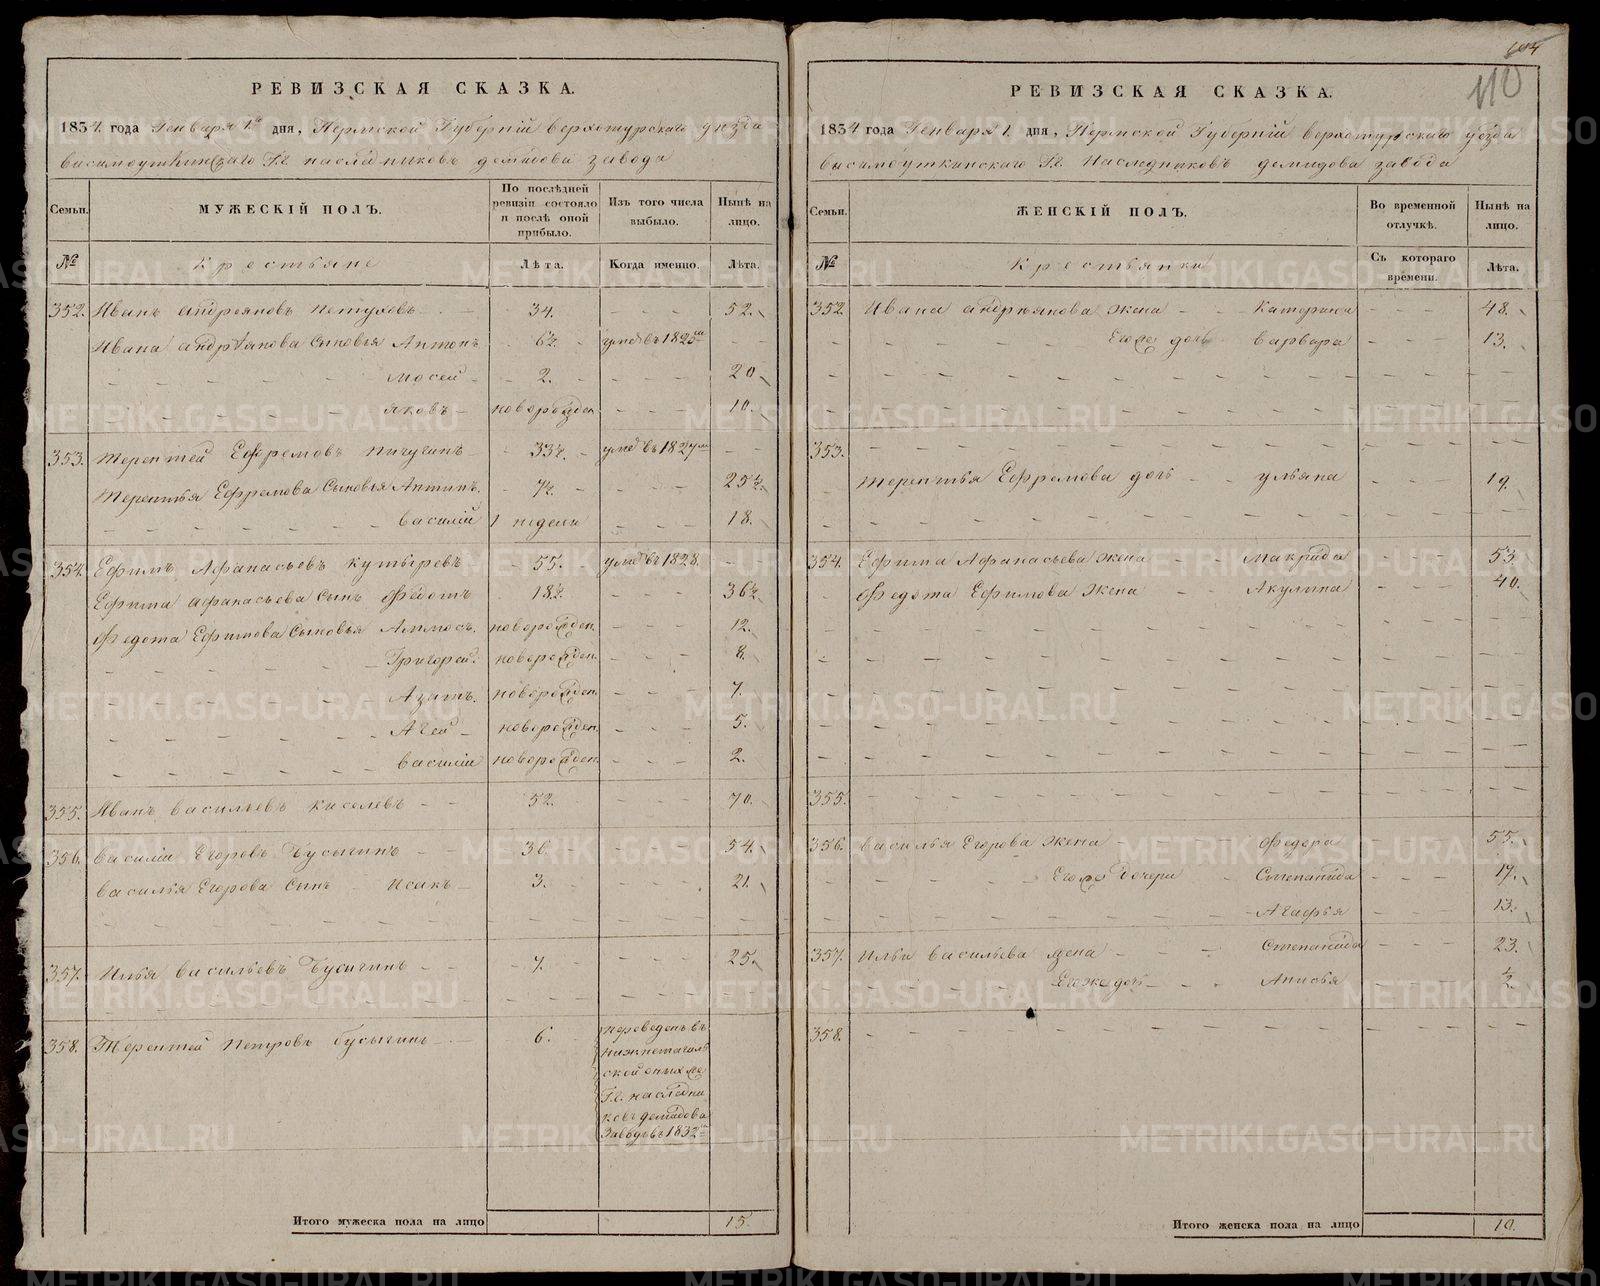 РЕВИЗСКАЯ СКАЗКА.
1834. года Генваря 1го дня, Пермской Губернiй верхотурскаго уезда
висимоуткинскаго Гг. наследниковъ демидова завода
Семьи.
МУЖЕСКIЙ ПОЛЪ.
По послѣдней ревизiи состояло и послѣ оной прибыло.
Изъ того числа выбыло.
Нынѣ на лицо.
№
Крестьяне
Лѣта.
Когда именно.
Лѣта.
352. Иванъ андреяновъ петуховъ 34. 52.
Ивана андреянова Сыновья Антонъ 6½. умре въ 1825м
мосей 2. 20
яковъ новорожден. 10.
353. терентей Ефремовъ пичугинъ 33½. умре въ 1827м
терентья Ефремова Сыновья Антипъ. 7½. 25½.
василiй 1 недели 18.
354. Ефимъ Афанасьевъ кутыревъ 55. умре въ 1828.
Ефима афанасьева Сынъ Федотъ 18½. 36½.
Федота Ефимова Сыновья Аммосъ. новорожден. 12.
Григорей. новорожден. 8.
Азатъ. новорожден. 7.
Агей новорожден. 5.
василiи новорожден. 2.
355. Иванъ васильевъ киселевъ 52. 70.
356. василiи Егоровъ Бусыгинъ 36. 54.
василья Егорова Сынъ Исакъ 3. 21.
357. Илья васильевъ Бусыгинъ 7. 25.
358. Терентей петровъ бусыгинъ 6. переведенъ въ
нижнетагиль
ской оныхже
Гг. наследни
ковъ демидова
Заводъ въ 1832м
Итого мужеска пола на лицо 15.
110
РЕВИЗСКАЯ СКАЗКА.
1834 года Генваря 1. дня, Пермской Губернiй верхотурскаго уезда
висимоуткинскаго Гг. Наследниковъ демидова завода
Семьи.
ЖЕНСКIЙ ПОЛЪ.
Во временной отлучкѣ.
Нынѣ на лицо.
№
Крестьянки
Съ котораго времени.
Лѣта.
352 Ивана андреянова жена Катерина 48.
Егоже дочь варвара 13.
353.
терентья Ефремова дочь ульяна 19.
354. Ефима Афанасьева жена Макрида 53
Федота Ефимова жена Акулина 40.
355.
356. василья Егорова жена Федора 55.
Егоже дочери Степанида 17.
Агафья 13.
357. Ильи васильева жена Степанида 23.
Егоже дочь Анисья ½.
358.
Итого женска пола на лицо 10.
METRIKI.GASO-URAL.RU